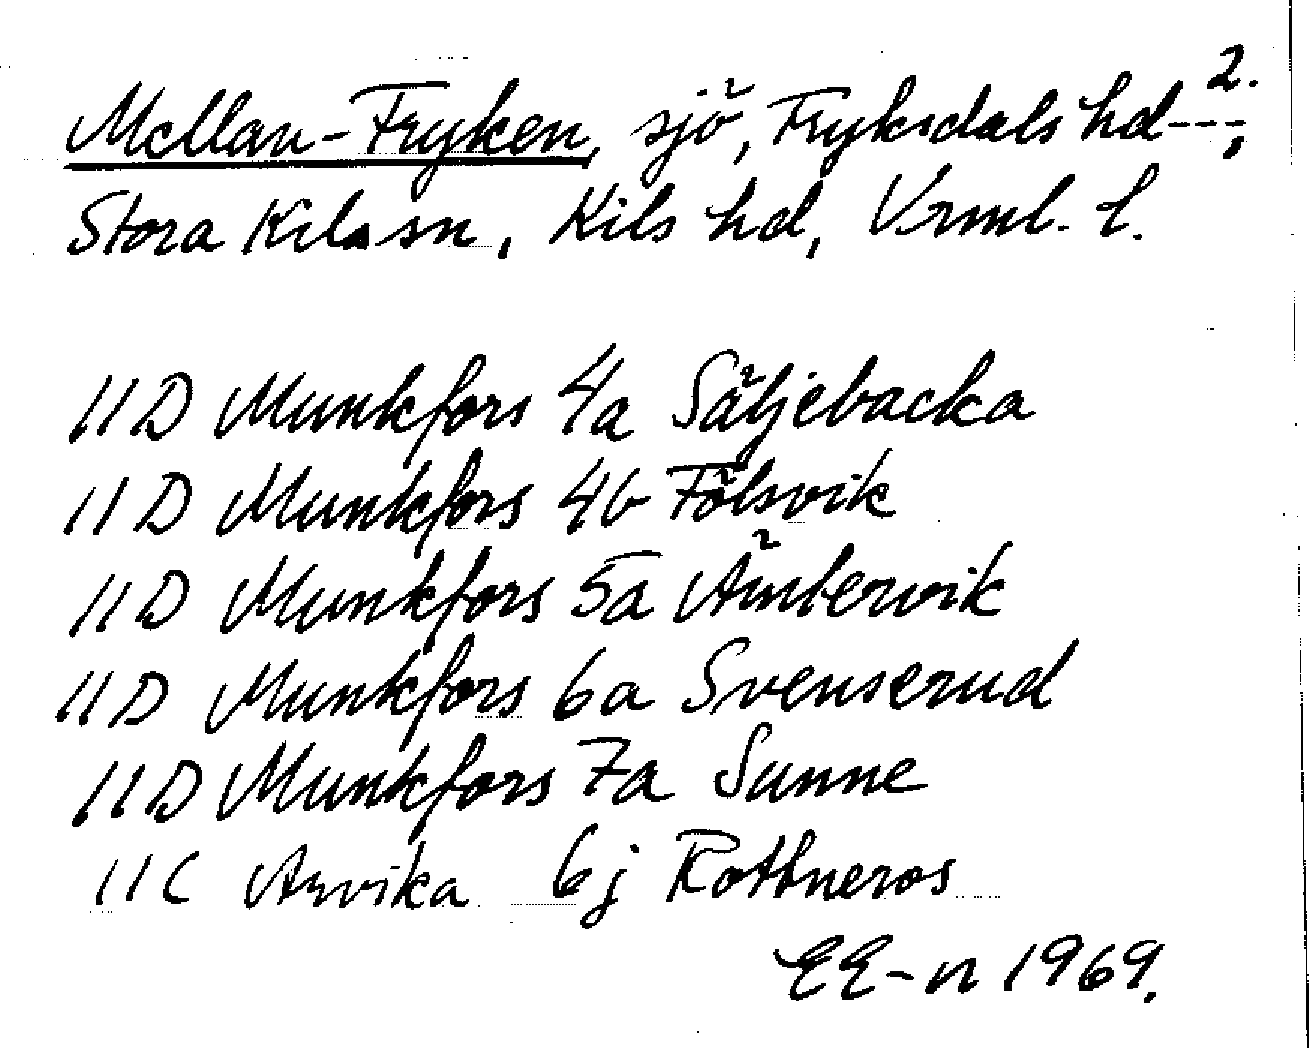 2.
Mellan-Fryken, sjö, Fryksdals hd---,
Stora Kils sn, Kils hd, Vrml. l.
11D Munkfors 4a Säljebacka
11D Munkfors 4b Fölsvik
11D Munkfors 5a Ämtervik
11D Munkfors 6a Svenserud
11D Munkfors 7a Sunne
11C Arvika 6j Rottneros
EE-n 1969.